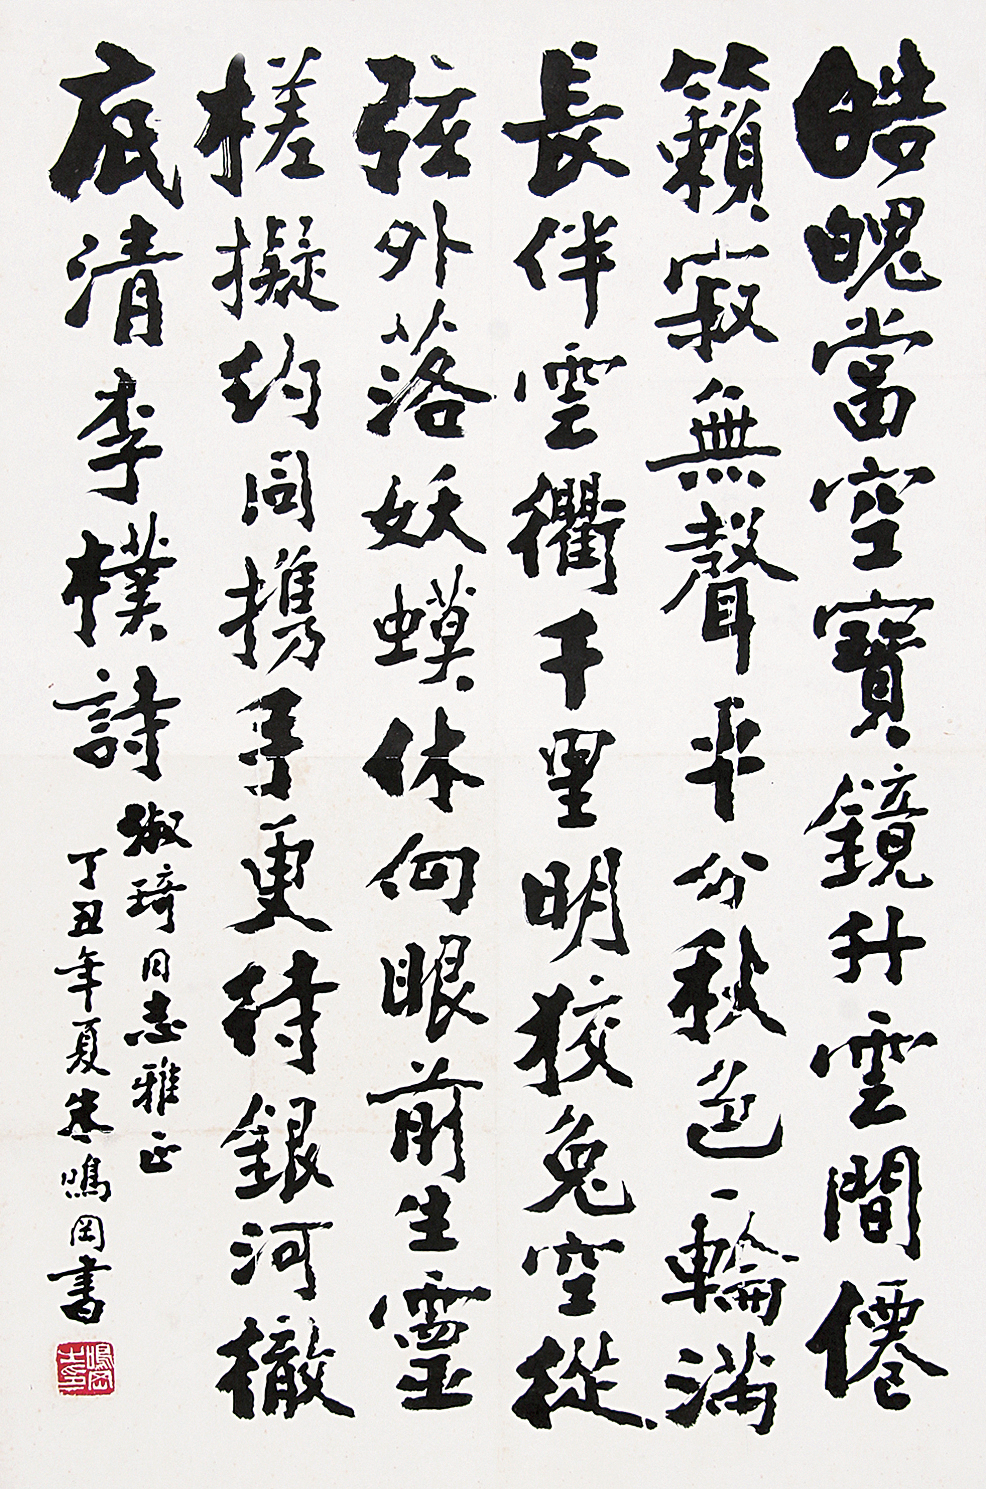 皓魄當空寶鏡升雲間僊
籟寂無聲平分秋色一輪滿
長伴雲衢千里明狡兔空從
弦外落妖蟆休向眼前生靈
槎擬約同携手更待銀河徹
底清李樸詩
淑琦同志雅正
丁丑年夏朱鳴岡書
鳴岡